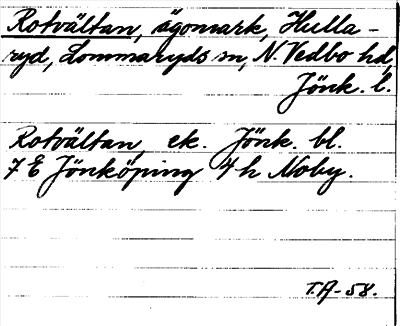 Rotvältan, ägomark, Hulla-
ryd, Lommaryds sn, N. Vedbo hd,
Jönk. l.
Rotvältan, ek. Jönk. bl.
7 E Jönköping 4 h Noby.
T.A-58.